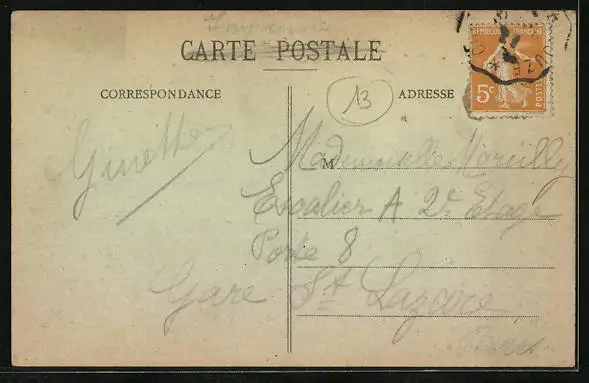 CARTE POSTALE
CORRESPONDANCE
13
ADRESSE
REPUBLIQUE FRANÇAISE
5c
POSTES
Ginette
M
Mademoiselle Mareilly
Escalier A 2e Etage
Porte 8
Gare St Lazare
Paris